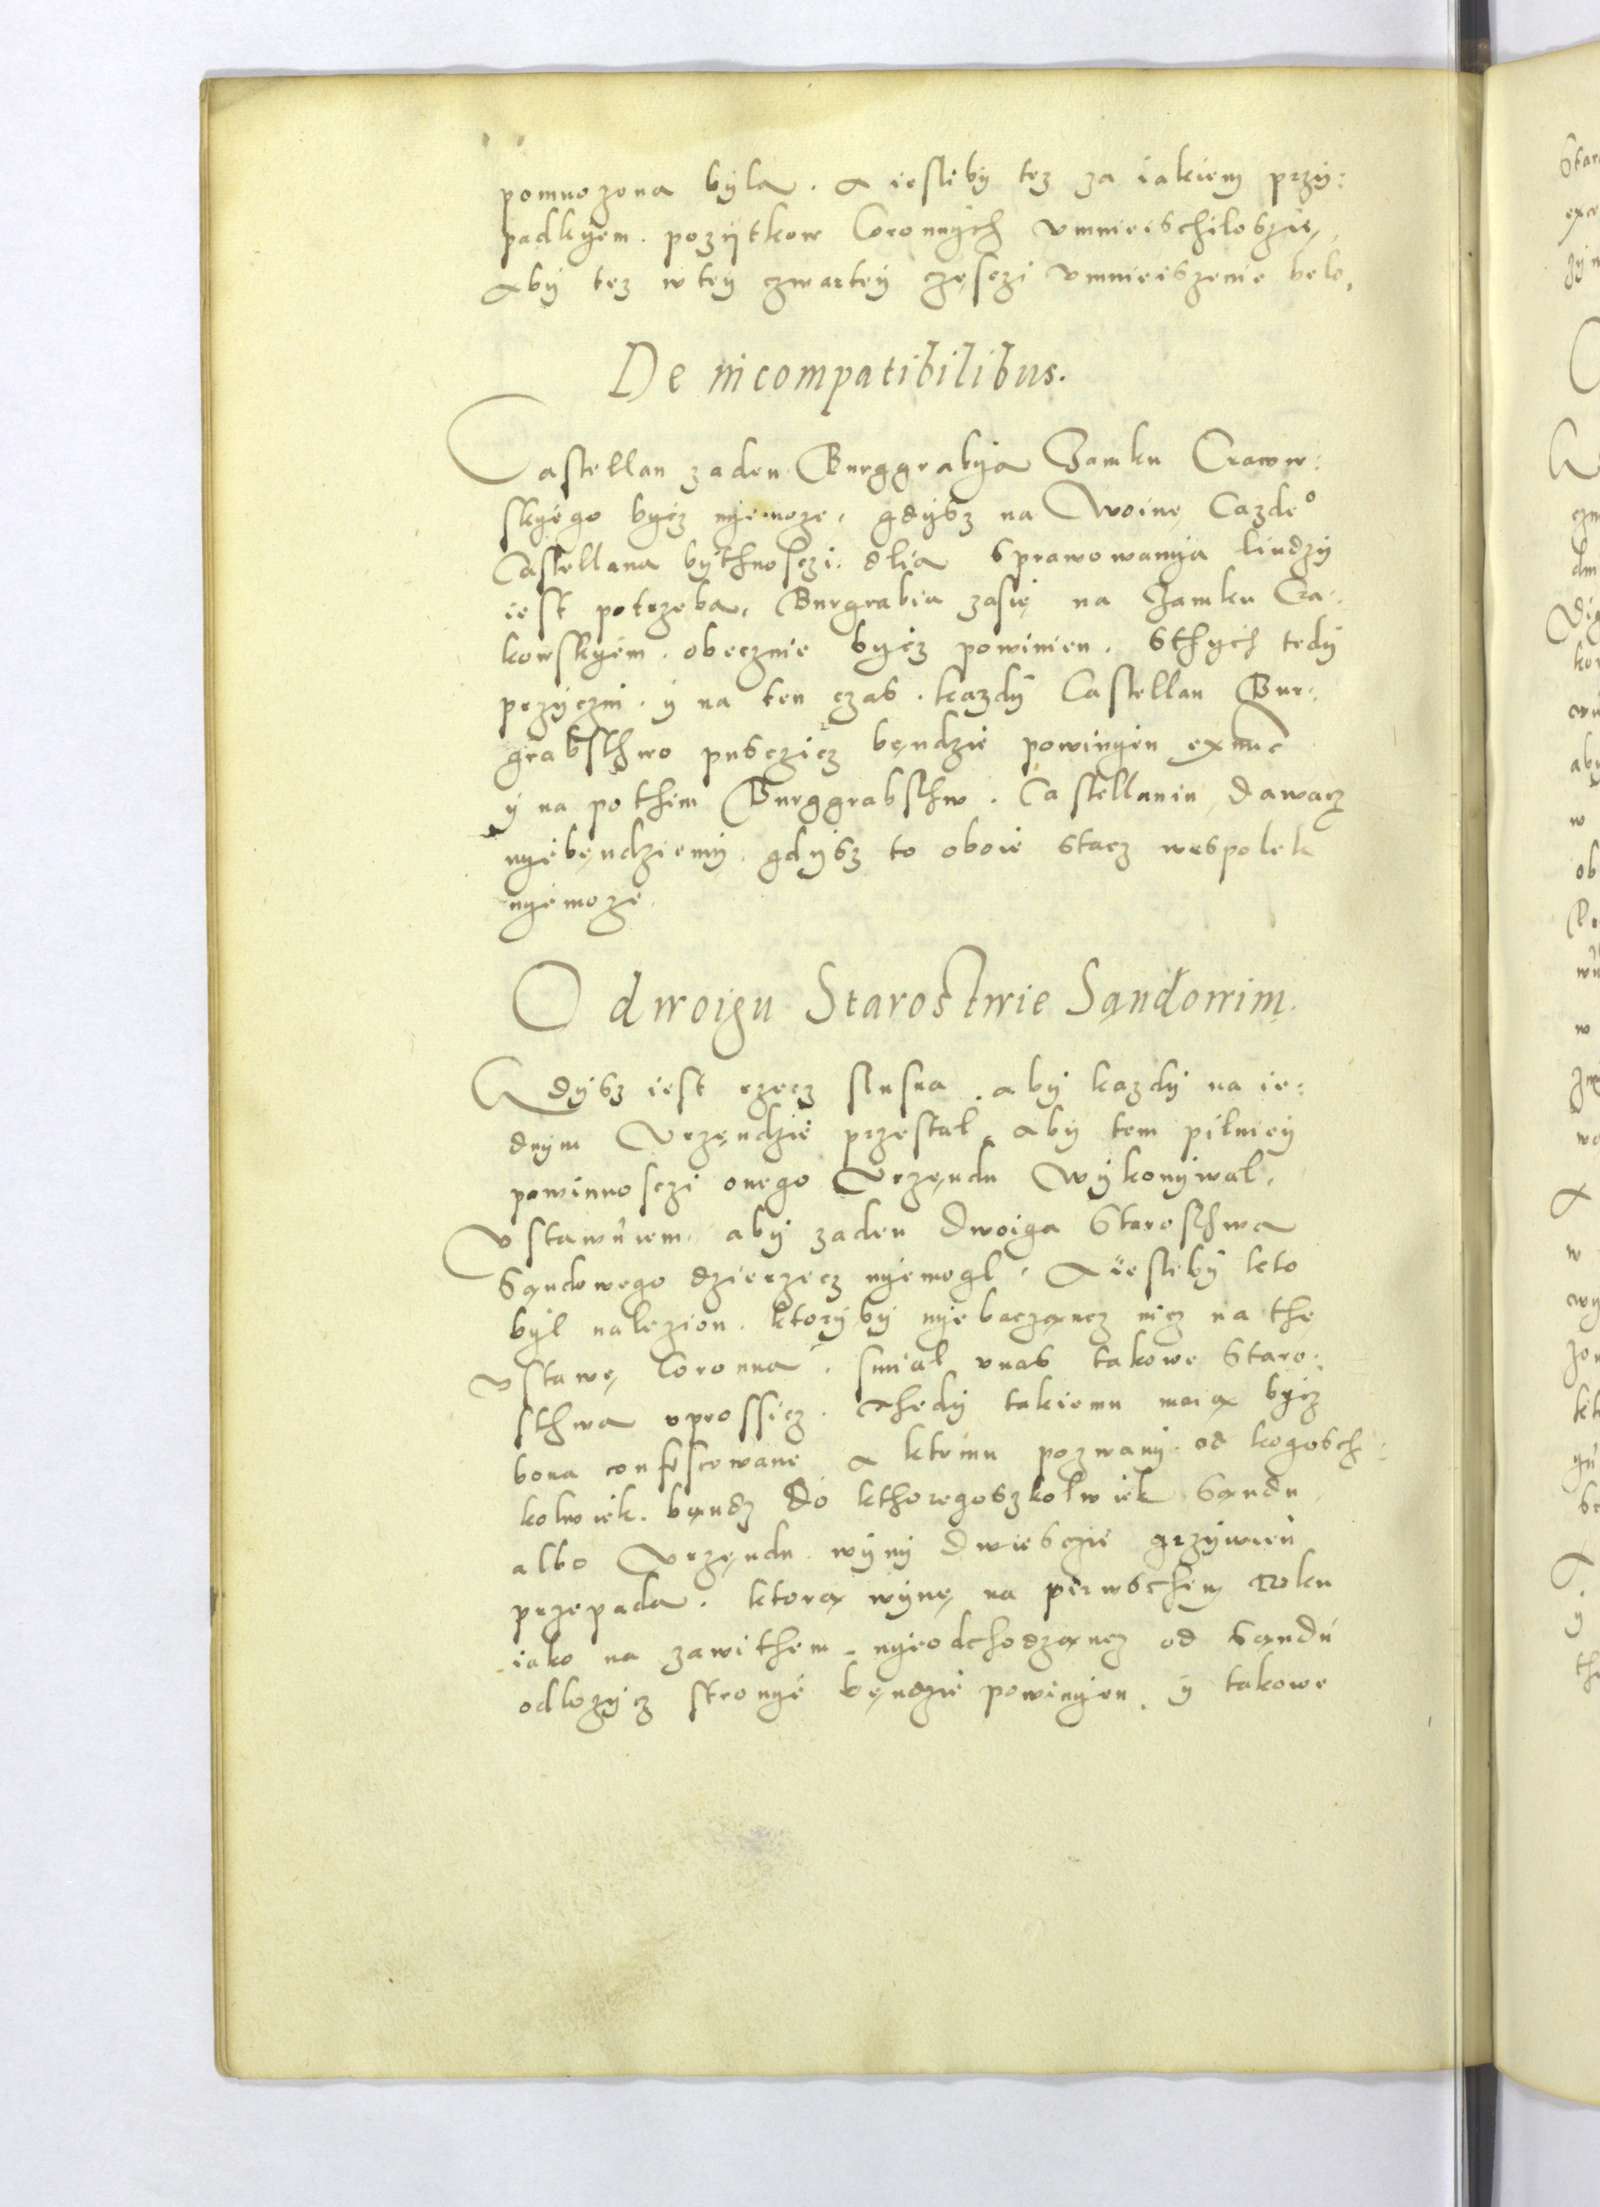 pomnozona byla. A iesliby tez za iakiem przy:
padkyem. pozytkow Coronnych vmnieischiloszię,
Aby tez w tey czwartey częsczi vmnieiszenie belo,
De incompatibilibus.
Castellan zaden Burggrabya Zamku Cracow:
skyego bycz nyemoze, gdysz na Woinę Cazde°
Castellana bythnosczi. dlia sprawowanya liudzy
iest potrzeba, Burgrabia zasię na Zamku Cra:
kowskyem. obecznie bycz powinien. Sthych tedy
przyczin. y na ten czas. kazdy Castellan Bur:
grabsthwo pusczicz bęndzie powinyen exnunc
y na pothim Burggrabsthw. Castellanin dawacz
nyebęndziemy. gdysz to oboie stacz wespolek
nyemoze.
O dwoigu Starostwie Sąndowim.
Gdysz iest rzecz slusna. aby kazdy na ie:
dnym Vrzędzie przestal, Aby tem pilniey
powinnosczi onego Vrzęndu Wykonywal,
Vstawuiem. aby zaden Dwoiga Starosthwa
Sąndowego dzierzecz nyemogl, A iesliby kto
byl nalezion. ktoryby nyebacząncz nicz na the
Vstawę Coronna. smial vnas takowe Staro:
sthwa vprossicz. Thedy takiemu maią bycz
bona confiscowane A ktemu pozwany od kogosch:
kolwiek. bąndz Do kthoregoszkolwiek Sąndu
albo Vrzęndu wyny Dwiesczie grzywien
przepada. ktorą wynę na pierwschem Roku
iako na zawithem. nyeodchodząncz od Sąndu
odlozycz stronye bęndzie powinyen. y takowe